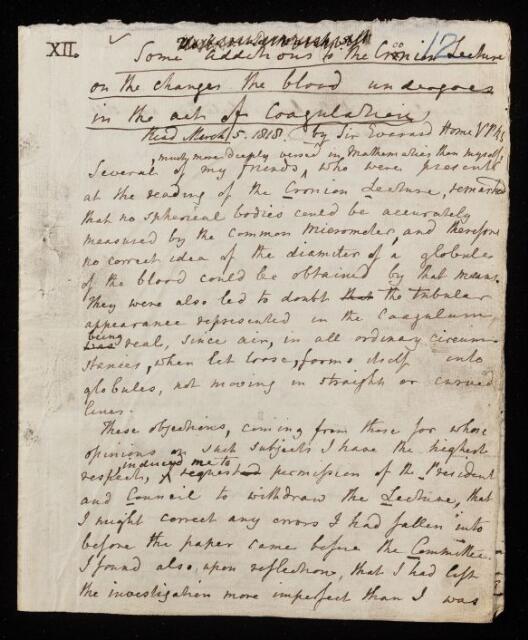 XII.
12
Some additions to the Cronian Lecture
on the changes the blood undergoes
in the act of Coagulation
Read March 5. 1818. by Sir Everard Home V.P.R.S
much more deeply versed in Mathematics than myself,
Several of my friends, who were present
at the reading of the Cronian Lecture, remarked
that no spherical bodies could be accurately
measured by the common micrometer, and therefore
no correct idea of the diameter of a globule
of the blood could be obtained by that means.
They were also led to doubt that the tubular
appearance represented in the coagulum,
being
was real, since air, in all ordinary circum-
stances, when let loose, forms itself into
globules, not moving in straight or curved
lines.
These objections, coming from those for whose
opinions on such subjects I have the highest
induced me to
respect, I requested permission of the President
and Council to withdraw the Lecture, that
I might correct any errors I had fallen into
before the paper came before the Committee.
I found also, upon reflection, that I had left
the investigation more imperfect than I was